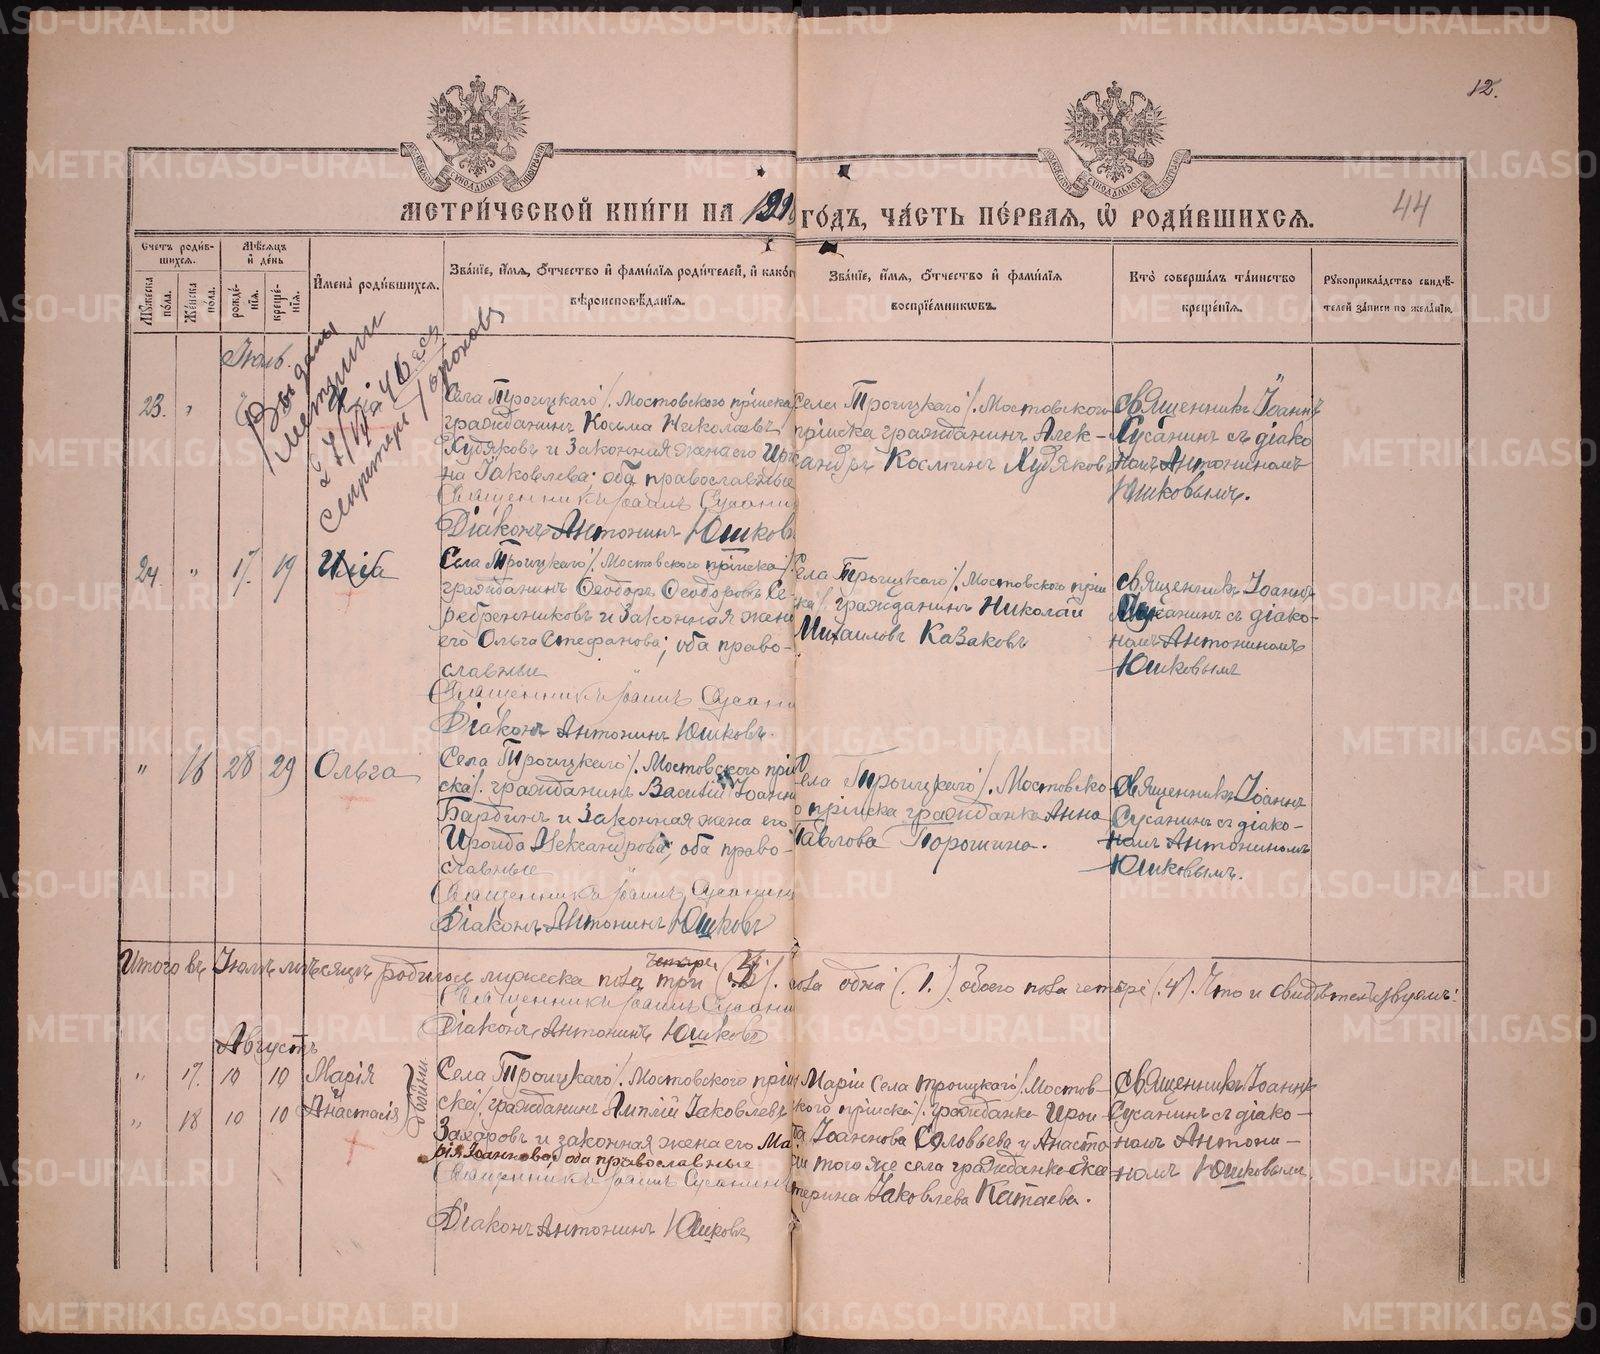 12.
44
МЕТРИЧЕСКОЙ КНИГИ НА
ГОДЪ, ЧАСТЬ ПЕРВАЯ, Ѽ РОДИВШИХСЯ.
Счетъ родив-
шихся.
Мужеска пола.
Женска пола.
Мѣсяцъ и день
рожде-
нія.
креще-
нія.
Имена родившихся.
Званіе, имя, отчество и фамилія родителей, и какого
вѣроисповѣданія.
Званіе, имя, отчество и фамилія
воспріемниковъ.
Кто совершалъ таинство
крещенія.
Рукоприкладство свидѣ-
телей записи по желанію.
Іюль.
Выданы
метрики
секретарь
23.
"
Села Троицкаго/. Мостовского пріиска
гражданинъ Косьма Николаевъ
Худяковъ и законная жена его Ири
на Іаковлева; оба православные
Священникъ Іоаннъ Сусанинъ
Діаконъ Антонинъ Юшковъ
Села Троицкаго/. Мостовского
пріиска гражданинъ Алек-
сандръ Косминъ Худяковъ
Священникъ Іоаннъ
Сусанинъ съ діако
номъ Антониномъ
Юшковымъ.
24.
"
17.
19
Илія
Села Троицкаго/. Мостовского пріиска/.
гражданинъ Ѳеодоръ Ѳеодоровъ Се-
ребренниковъ и законная жена
его Ольга Стефанова; оба право-
славные
Священникъ Іоаннъ Сусани
Діаконъ Антонинъ Юшковъ.
Села Троицкаго/. Мостовского прiи
ска/. гражданинъ Николай
Михаиловъ Казаковъ
Священникъ Іоаннъ
Сусанинъ съ діако-
номъ Антониномъ
Юшковымъ
"
16
28
29
Ольга
Села Троицкаго/. Мостовского прiи
ска/. гражданинъ Василій Іоанн
Бардинъ и законная жена его
Ироида Александрова; оба право-
славные
Священникъ Іоаннъ Сусанинъ
Діаконъ Антонинъ Юшковъ
Села Троицкаго/. Мостовско-
го пріиска гражданка Анна
Павлова Порошина.
Священникъ Іоаннъ
Сусанинъ съ діако-
номъ Антониномъ
Юшковымъ.
Итого въ Іюлѣ мѣсяцѣ родилось мужеска пола три (3).
пола одна (.1.). обоего пола четыре (.4.). Что и свидѣтельствуемъ:
Священникъ Іоаннъ Сусани
Діаконъ Антонинъ Юшковъ
Августъ
"
17.
10
10
Марія
и
"
18
10
10
Анастасія
двойни
Села Троицкаго/. Мостовского прiи
ска/. гражданинъ Іаковлевъ
Захаровъ и законная жена его Ма
рія Іоаннова, оба православные
Священникъ Іоаннъ Сусанинъ
Діаконъ Антонинъ Юшковъ
Маріи Села Троицкаго/. Мостов-
кого пріиска/. гражданка Ирои
да Іоаннова Соловьева и Анаста
сіи того же села гражданка Ека
терина Іаковлева Катаева.
Священникъ Іоаннъ
Сусанинъ съ діако-
номъ Антони-
номъ Юшковымъ.
METRIKI.GASO-URAL.RU